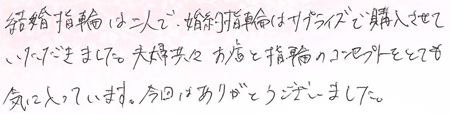 結婚指輪は二人で、婚約指輪はサプライズで購入させて
いただきました。夫婦共々お店と指輪のコンセプトをとても
気に入っています。今回はありがとうございました。